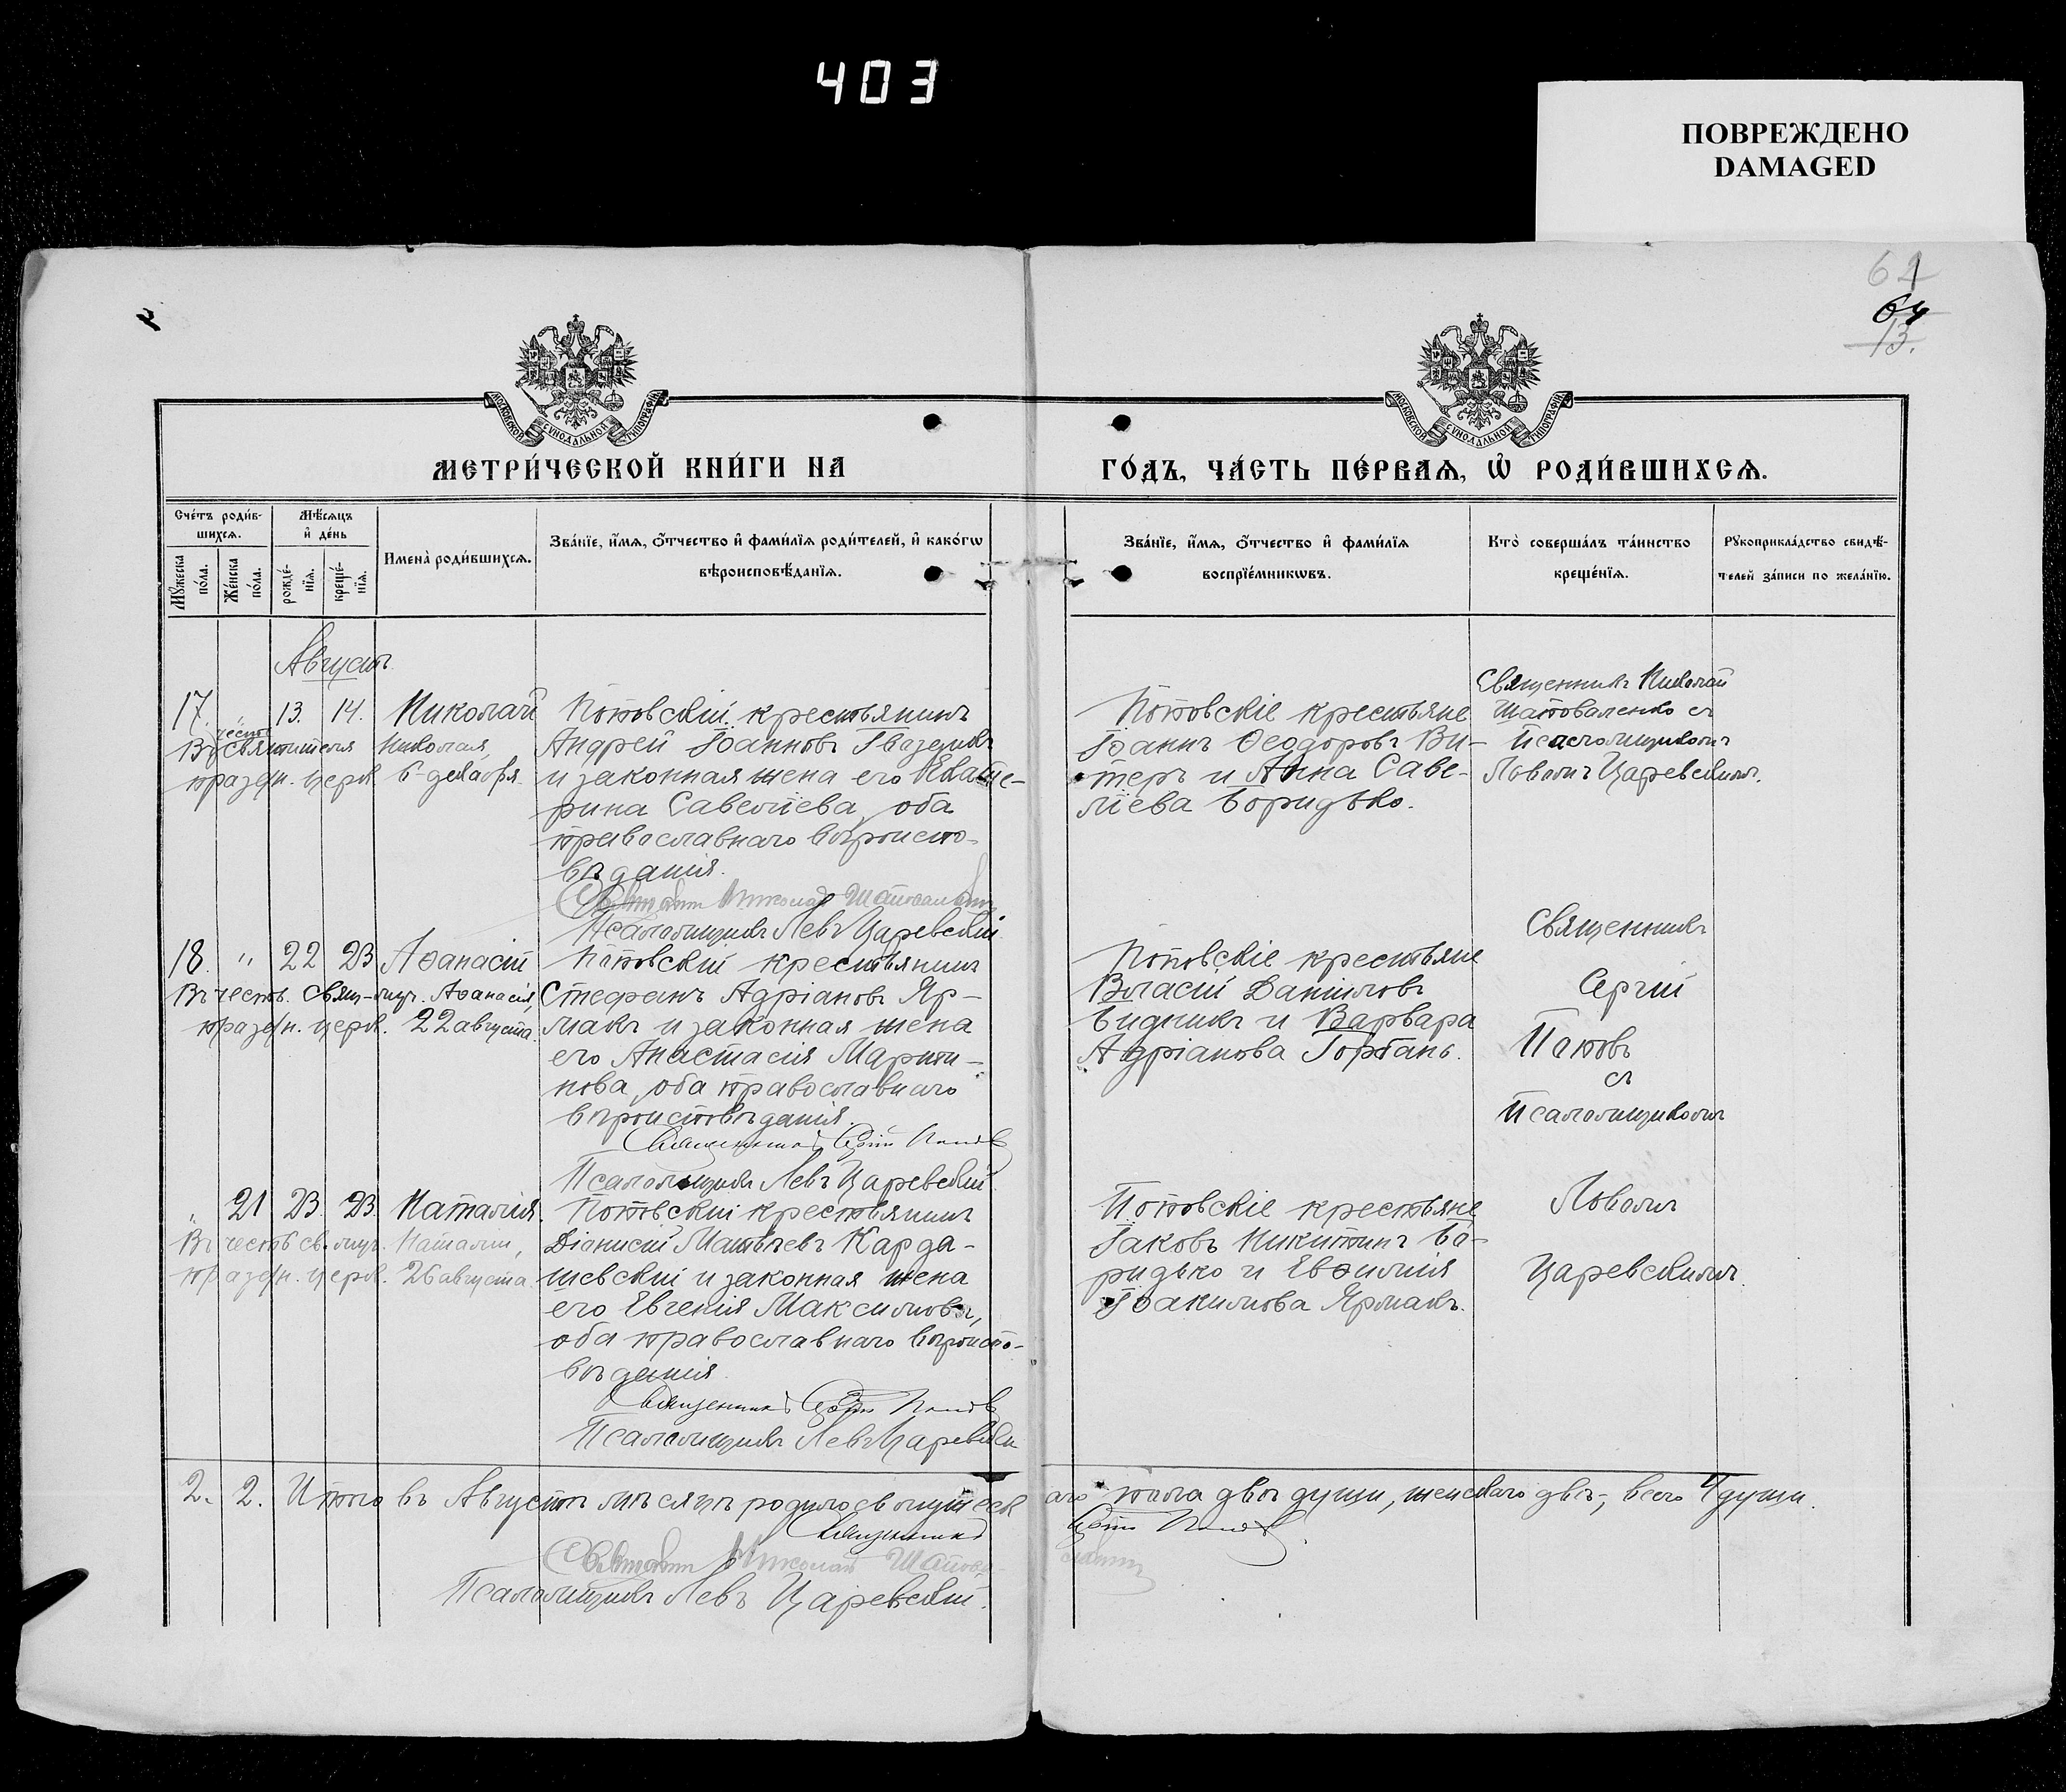 403
ПОВРЕЖДЕНО
DAMAGED
64
13.
МЕТРИ́ЧЕСКОЙ КНИ́ГИ НА
ГО́ДЪ, ЧА́СТЬ ПЕ́РВАѦ, Ѿ РОДИ́ВШИХСѦ.
Сче́тъ роди́в-
шихсѧ.
Мꙋ́жеска по́ла.
Же́нска по́ла.
Мѣ́сѧцъ
и҆ де́нь
рожде́-нїѧ.
креще́-нїѧ.
Имена̀ роди́вшихсѧ.
Зва́нїе, и҆́мѧ, о҆́тчество и҆ фами́лїѧ роди́телей, и҆ како́гѡ
вѣроисповѣ́данїѧ.
Зва́нїе, и҆́мѧ, о҆́тчество и҆ фами́лїѧ
воспрїе́мникѡвъ.
Кто̀ соверша́лъ та́инство
креще́нїѧ.
Рꙋкоприкла́дство свидѣ́-
телей за́писи по жела́нїю.
Августъ
17. " 13. 14. Николай
Въ честь святителя Николая,
праздн. церк. 6 декабря.
Поповскій крестьянинъ
Андрей Іоанновъ Гваздикъ
и законная жена его Екате-
рина Савеліева, оба
православнаго вѣроиспо-
вѣданія.
Священникъ Николай Шаповаленко
Псаломщикъ Левъ Царевскій
Поповскіе крестьяне
Іоаннъ Ѳеодоровъ Ви-
теръ и Анна Саве-
ліева Боридько.
Священникъ Николай
Шаповаленко съ
Псаломщикомъ
Львомъ Царевскимъ.
18. " 22 23 Аѳанасій
Въ честь свящ-муч. Аѳанасія,
праздн. церк. 22 августа.
Поповскій крестьянинъ
Стефанъ Адріановъ Яр-
макъ и законная жена
его Анастасія Марти-
нова, оба православнаго
вѣроисповѣданія.
Священникъ Сергій Поповъ
Псаломщикъ Левъ Царевскій
Поповскіе крестьяне
Власій Даніиловъ
Бидникъ и Варвара
Адріанова Горбань.
Священникъ
Сергій
Поповъ
съ
Псаломщикомъ
Львомъ
Царевскимъ.
" 21 23. 23. Наталія.
Въ честь св. муч. Наталіи,
праздн. церк. 26 августа.
Поповскій крестьянинъ
Діонисій Матѳѣевъ Карда-
шевскій и законная жена
его Евгенія Максимова,
оба православнаго вѣроиспо-
вѣданія.
Священникъ Сергій Поповъ
Псаломщикъ Левъ Царевскій
Поповскіе крестьяне
Іаковъ Никитинъ Бо-
ридько и Евѳимія
Іоакимова Ярмакъ.
2. 2. Итого въ Августѣ мѣсяцѣ родилось мужескаго пола двѣ души, женскаго двѣ, всего 4 души.
Священникъ Сергій Поповъ
Священникъ Николай Шаповаленко
Псаломщикъ Левъ Царевскій.